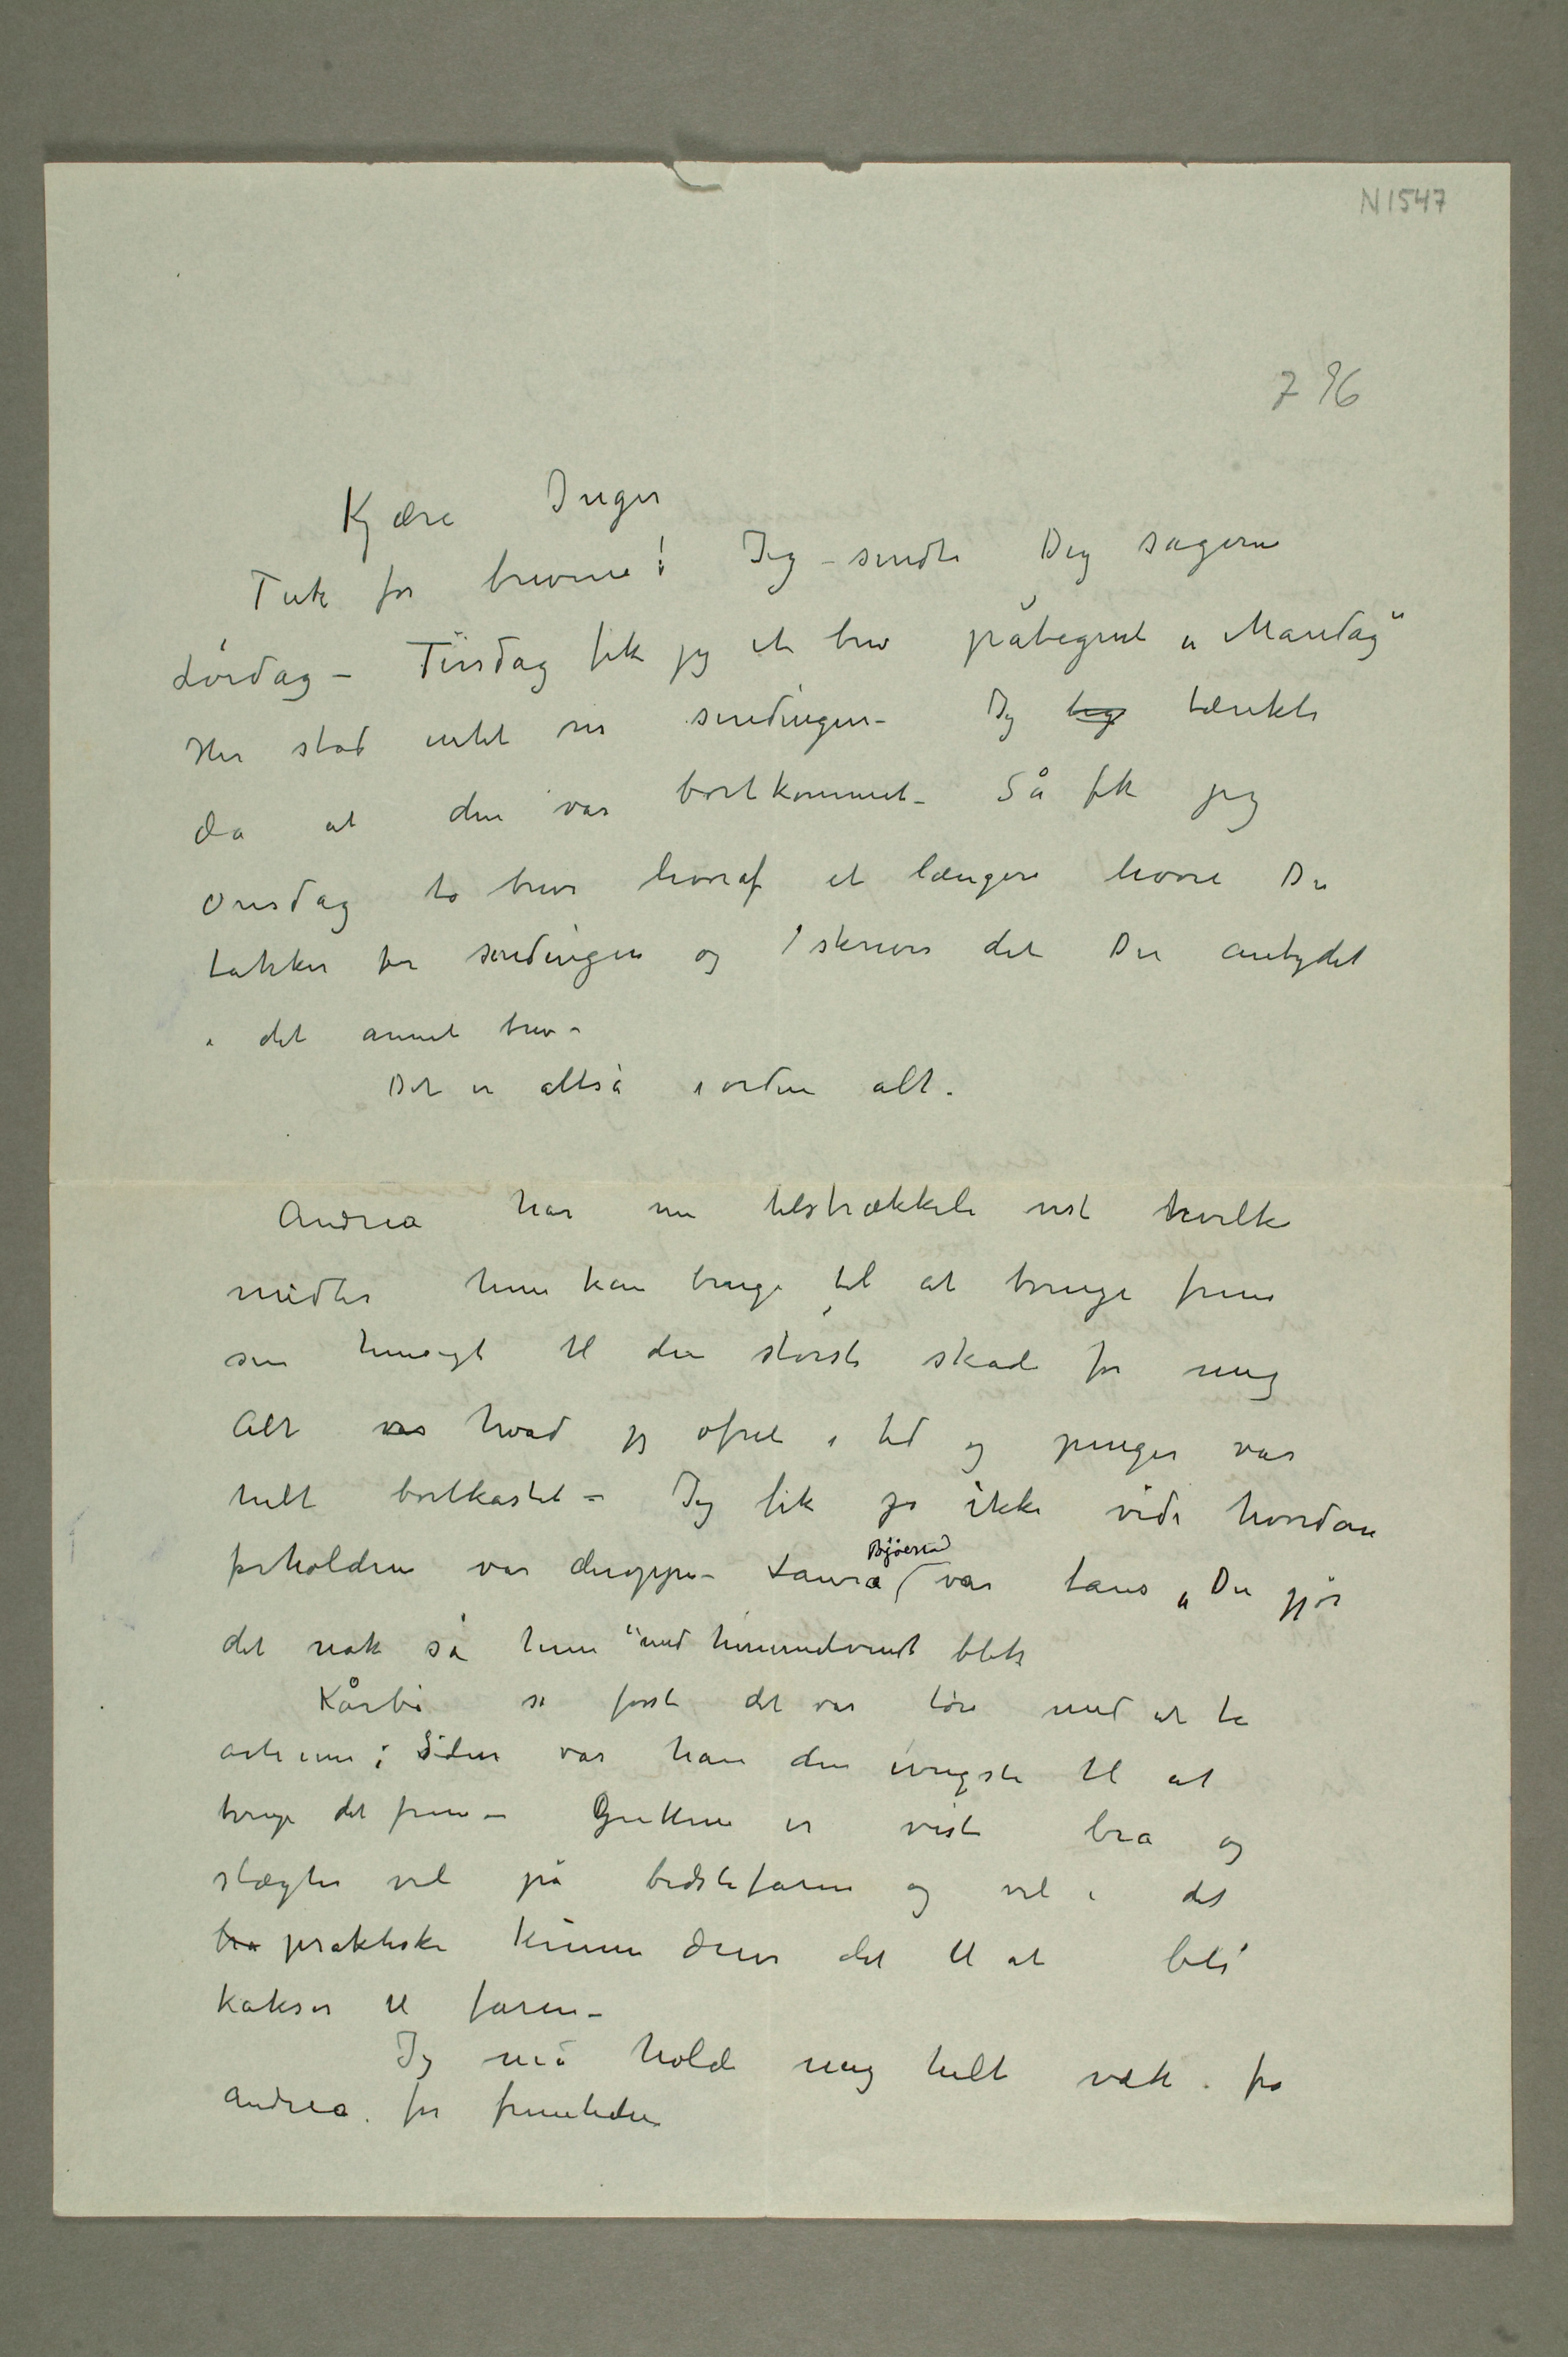 N 1547
7 96
Kjære Inger
Tak for brevene! Jeg sendte Dig sagerne
Lördag – Tirsdag fik jeg et brev påbegynt „Mandag"
Her stod intet om sendingen – Jeg tænkte
da at den var bortkommet – Så fik jeg
Onsdag to brev hvoraf et længere hvori Du
takker for sendingen og skriver det Du antydet
i det annet brev –
Det er altså i orden alt.
Andrea har nu tilstrækkeli vist hvilke
midler hun kan bruge til at bringe frem
sin hensigt til den störste skade for mig
Alt hvad jeg ofret i tid og penger var
helt bortkastet – Jeg fik jo ikke vide hvordan
forholdene var deroppe – Laura (var taus „Du gjör
Bjöerstad
det nok sa hun" med himmelvendt blik
Kårbö sa först det var töv med at ta
artium; Siden var han den ivrigste til at
bringe det frem – Guttene er visst bra og
slægter vel på bedstefaren og vil i det
bra praktiske kunne drive det til at bli
kakser til faren –
Jeg må holde mig helt væk fra
Andrea for fremtiden